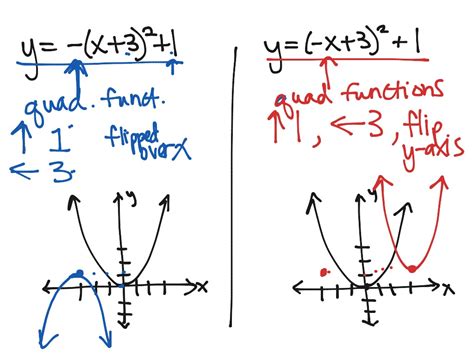 y = -(x+3)²+1
quad. funct.
↑ 1 flipped
over x
← 3
y
x
y = (-x+3)² + 1
quad functions
↑1, ←3, flip
y-axis
y
x